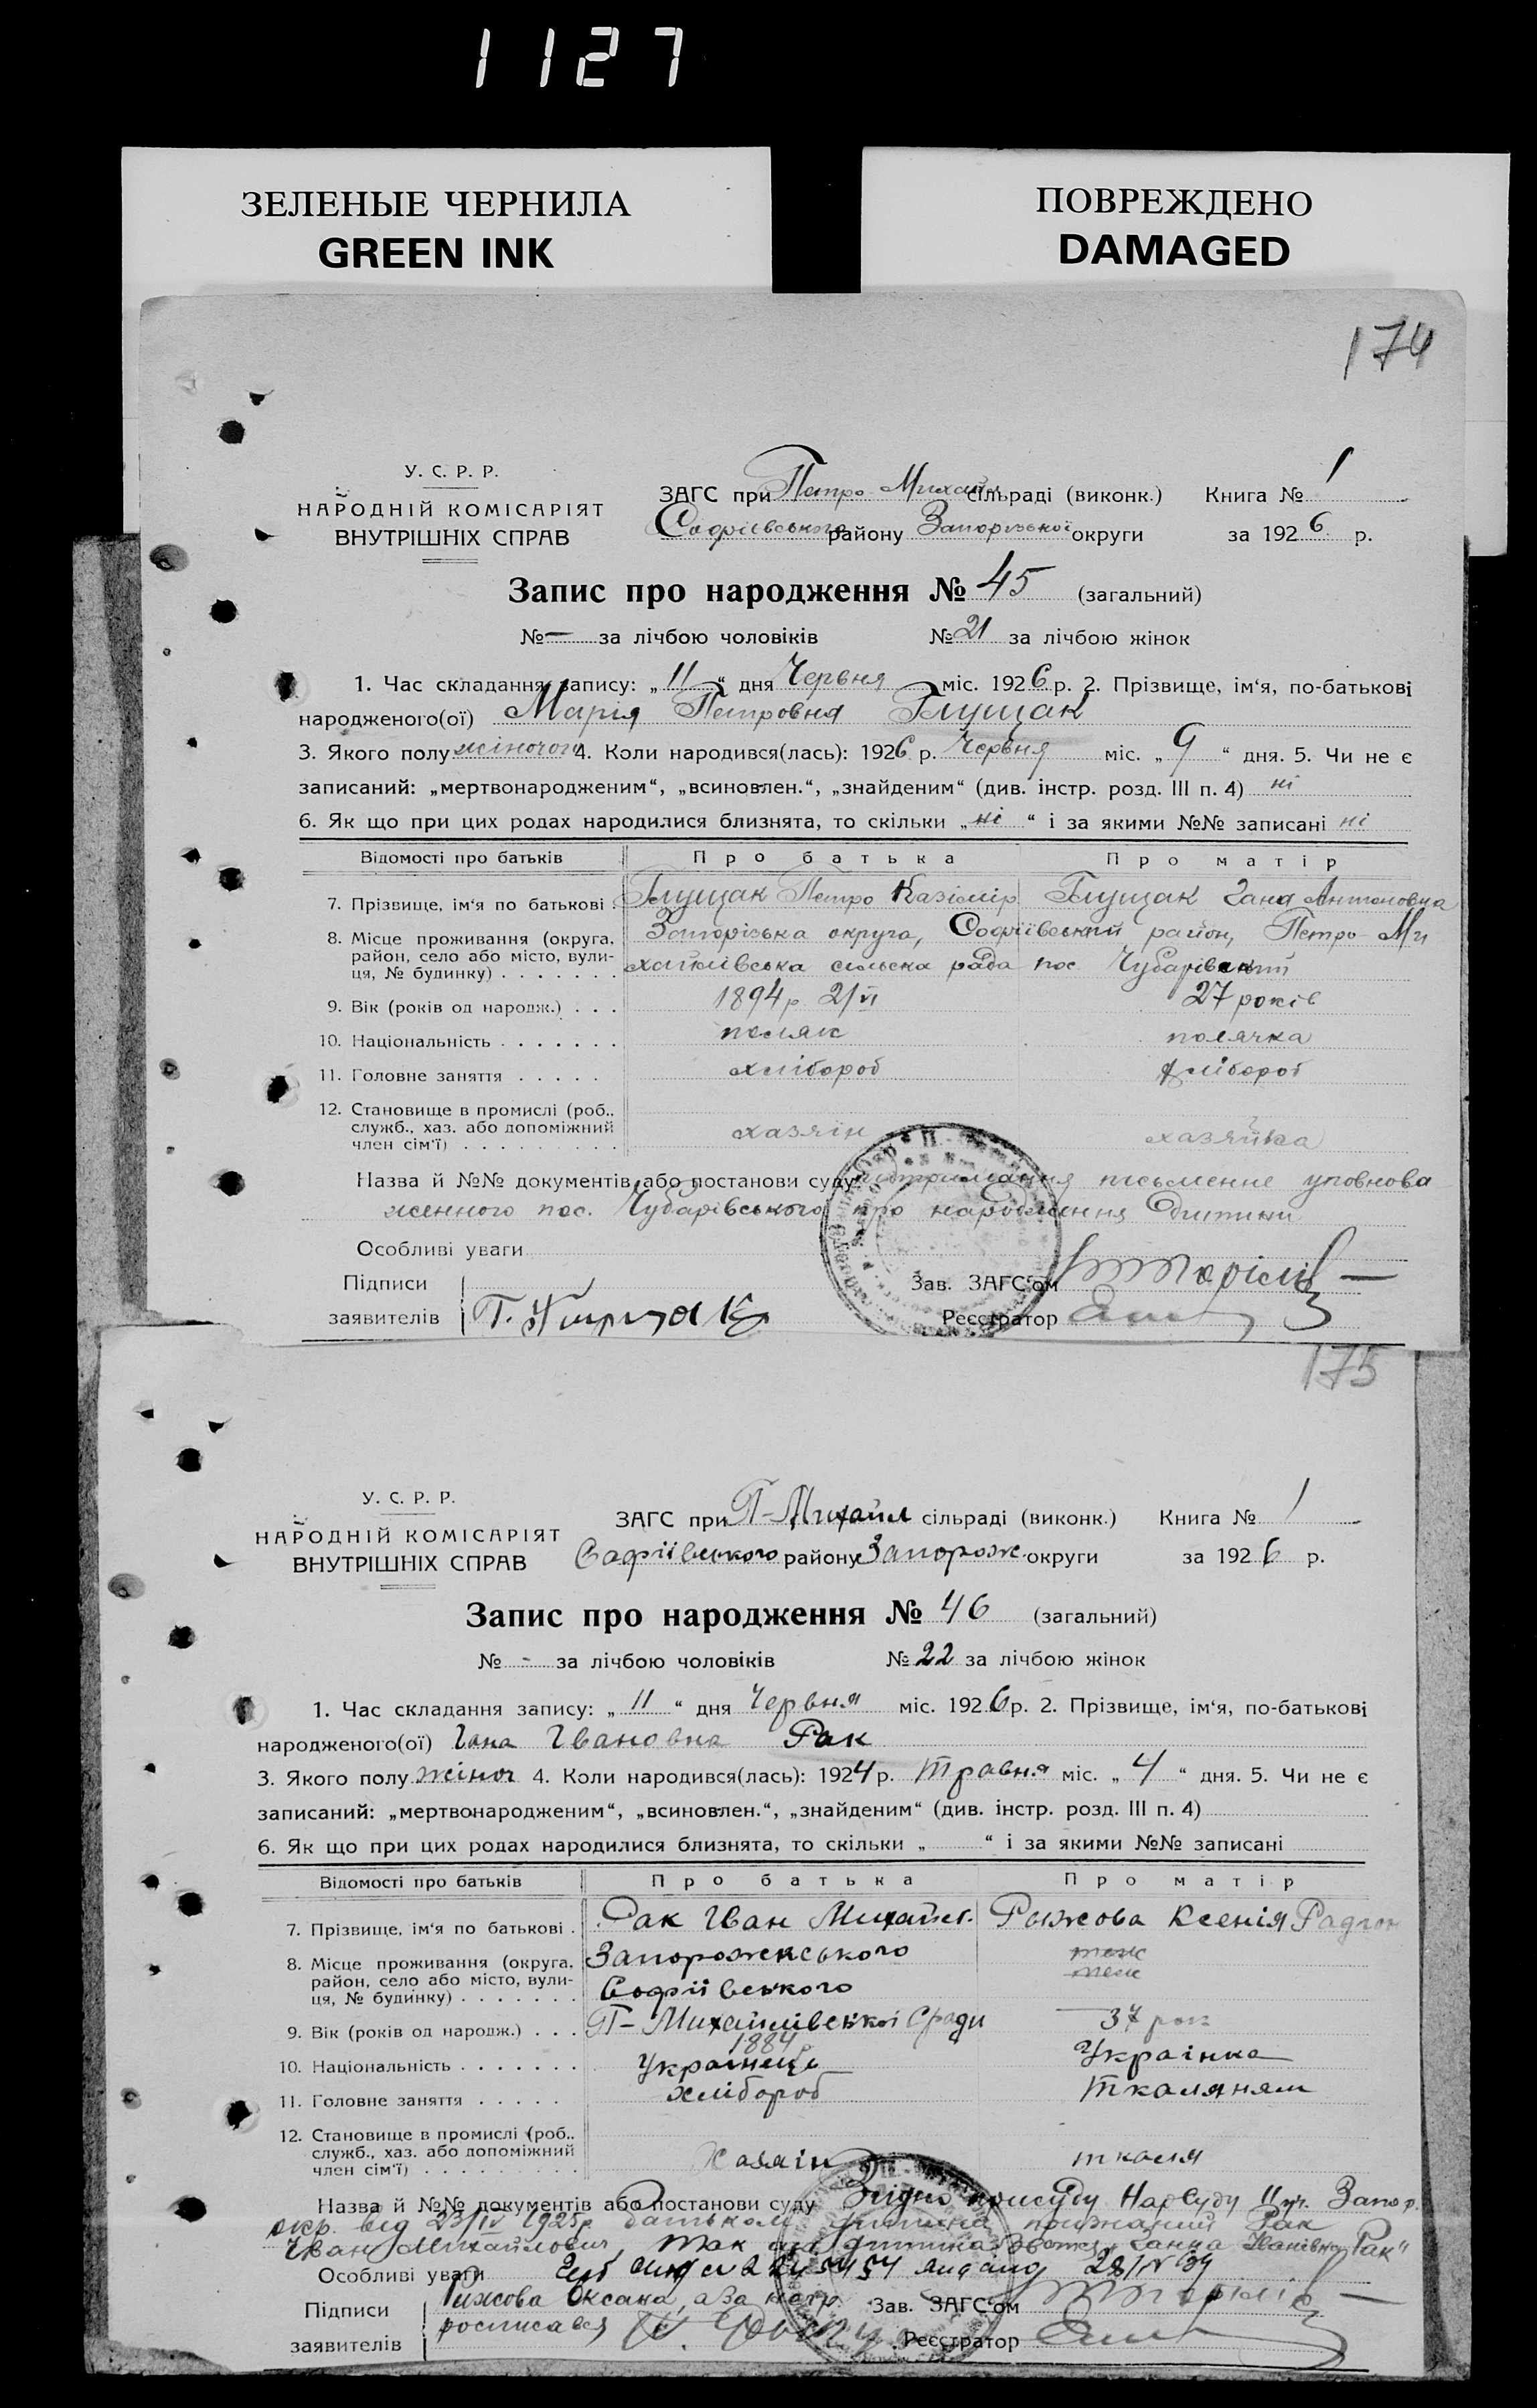 1127
ЗЕЛЕНЫЕ ЧЕРНИЛА
GREEN INK
ПОВРЕЖДЕНО
DAMAGED
174
У. С. Р. Р.
НАРОДНІЙ КОМІСАРІЯТ
ВНУТРІШНІХ СПРАВ
ЗАГС при Петро-Михайл сільраді (виконк.) Книга № 1
Софіївського району Запорізької округи за 1926 р.
Запис про народження № 45 (загальний)
№ — за лічбою чоловіків № 21 за лічбою жінок
1. Час складання запису: „11“ дня Червня міс. 1926 р. 2. Прізвище, ім‘я, по-батькові
народженого(ої) Марія Петровна Глущак
3. Якого полу жіночого 4. Коли народився(лась): 1926 р. Червня міс. „9“ дня. 5. Чи не є
записаний: „мертвонародженим“, „всиновлен.“, „знайденим“ (див. інстр. розд. III п. 4) ні
6. Як що при цих родах народилися близнята, то скільки „ні“ і за якими №№ записані ні
Відомості про батьків Про батька Про матір
7. Прізвище, ім‘я по батькові . Глущак Петро Казімір Глущак Гана Антоновна
8. Місце проживання (округа, район, село або місто, вулиця, № будинку) . . . . . . . Запорізька округа, Софіївський район, Петро-Ми
хайлівська сільска рада пос. Чубарівський
9. Вік (років од народж.) . . . 1894 р. 21/VI 27 років
10. Національність . . . . . . . поляк полячка
11. Головне заняття . . . . . хлібороб хлібороб
12. Становище в промислі (роб., служб., хаз. або допоміжний член сім‘ї) . . . . . . . . . хазяін хазяйка
Назва й №№ документів або постанови суду письменне уповнова
женного пос. Чубарівського про народження дитини
Особливі уваги
Підписи
заявителів
Зав. ЗАГС‘ом
Реєстратор
175
У. С. Р. Р.
НАРОДНІЙ КОМІСАРІЯТ
ВНУТРІШНІХ СПРАВ
ЗАГС при П-Михайл сільраді (виконк.) Книга № 1
Софіївського району Запорож. округи за 1926 р.
Запис про народження № 46 (загальний)
№ - за лічбою чоловіків № 22 за лічбою жінок
1. Час складання запису: „11“ дня Червня міс. 1926 р. 2. Прізвище, ім‘я, по-батькові
народженого(ої) Гана Івановна Рак
3. Якого полу жіноч 4. Коли народився(лась): 1924 р. Травня міс. „4“ дня. 5. Чи не є
записаний: „мертвонародженим“, „всиновлен.“, „знайденим“ (див. інстр. розд. III п. 4)
6. Як що при цих родах народилися близнята, то скільки „ “ і за якими №№ записані
Відомості про батьків Про батька Про матір
7. Прізвище, ім‘я по батькові . Рак Іван Михайл. Рижова Ксенія
8. Місце проживання (округа, район, село або місто, вулиця, № будинку) . . . . . . . Запорожського теж
Софіївського теж
П-Михайлівської с/ради
9. Вік (років од народж.) . . . 1884 37 рок
10. Національність . . . . . . . Українець Українка
11. Головне заняття . . . . . хлібороб ткаляням
12. Становище в промислі (роб., служб., хаз. або допоміжний член сім‘ї) . . . . . . . . . хазяін ткаля
Назва й №№ документів або постанови суду Згідно присуду НарСуду II уч. Запор.
окр. від 23/IV 1925р. батьком дитини признаний Рак
Іван Михайлович, так що дитина Ганна Іванівна „Рак“
Особливі уваги
Підписи
заявителів
Рижова Оксана, а за негр.
росписався
Зав. ЗАГС‘ом
Реєстратор